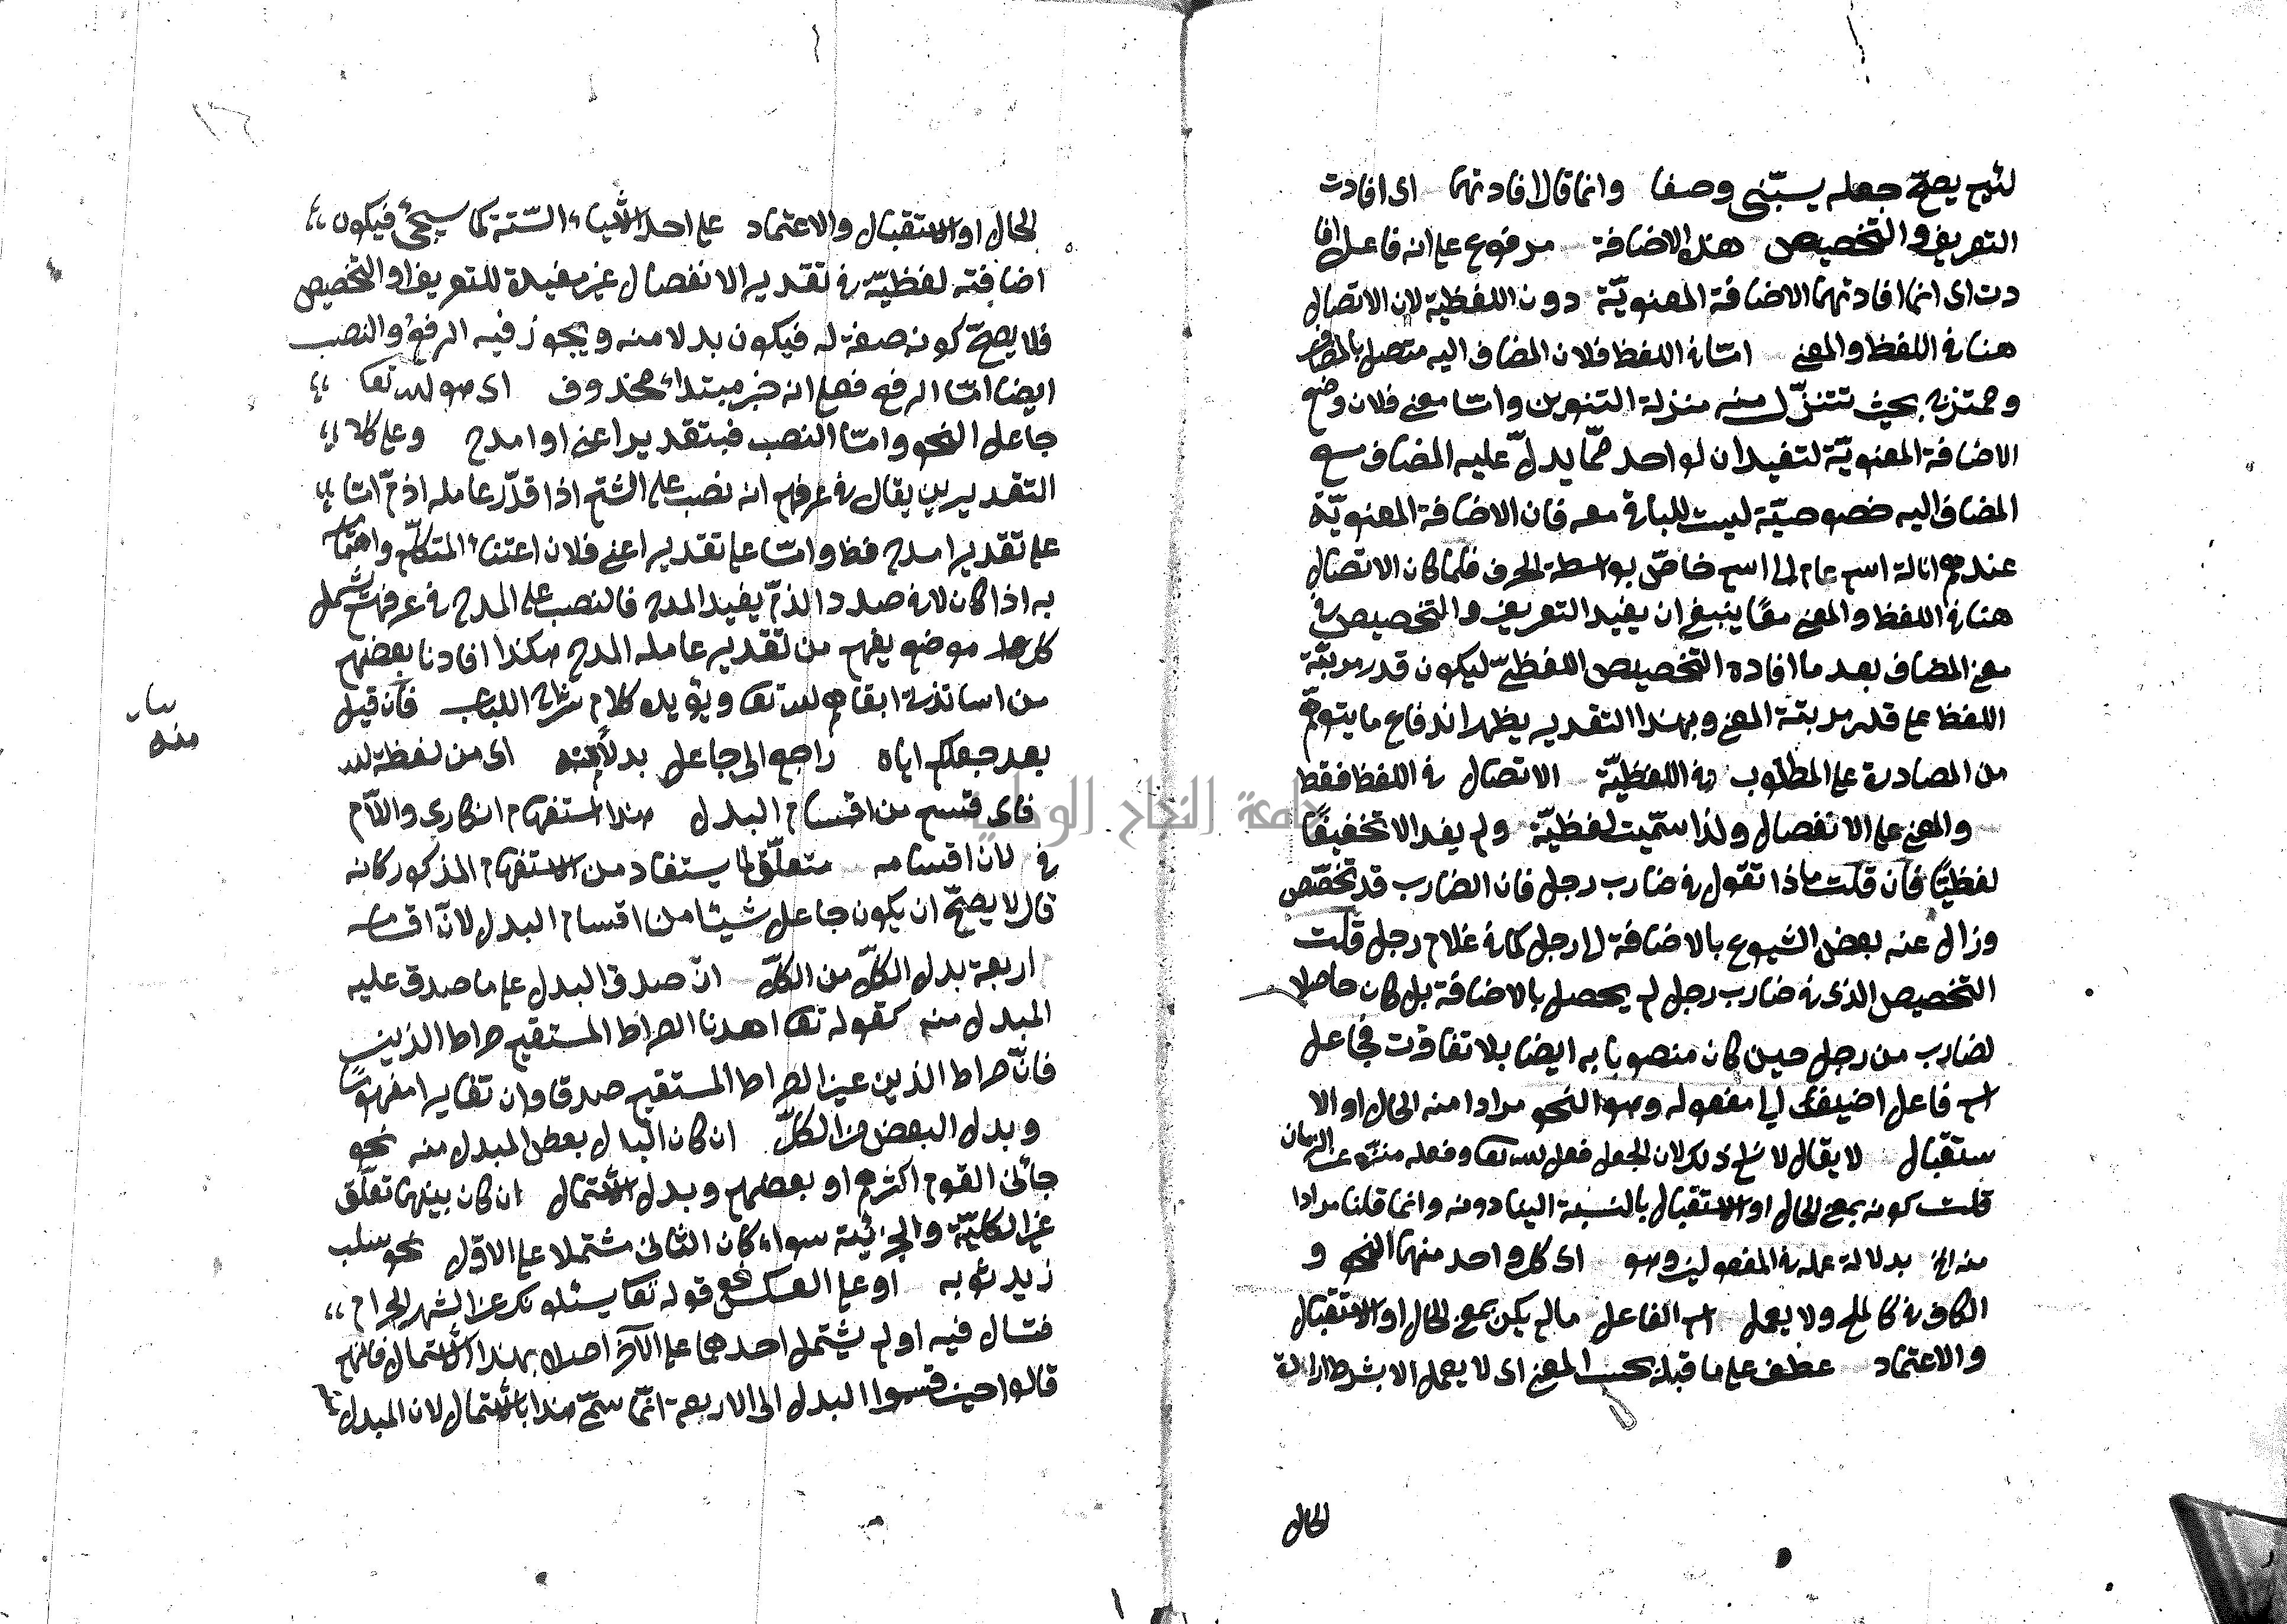 يصحّ جعله وصفا وانما قال لافادتهما اى افادت
التعريف والتخصيص هذه الاضافة مرفوع على انه فاعل افا
دت اى انما افادتهما الاضافة المعنويّة دون اللفظية لان الاتصال
هنا فى اللفظ والمعنى امّا فى اللفظ فلان المضاف اليه متصل بالمضاف
وممتزج بحيث تتنزّل منه منزلة التنوين وامّا معنى فلان وضع
الاضافة المعنويّة لتفيد ان لواحد ممّا يدلّ عليه المضاف مع
المضاف اليه خصوصيّة ليست للباقى معه فان الاضافة المعنويّة
عندهم انالة اسم عام الى اسم خاصّ بواسطة الحرف فلما كان الاتصال
هنا فى اللفظ والمعنى معًا ينبغى ان يفيد التعريف والتخصيص فى
معنى المضاف بعد ما افاده التخصيص اللفظىّ ليكون قدر مرتبة
اللفظ على قدر مرتبة المعنى وبهذا التقدير يظهر اندفاع ما يتوهّم
من المصادرة على المطلوب وفى اللفظيّة الاتصال فى اللفظ فقط
والمعنى على الانفصال ولذا سمّيت لفظيّة ولم يفد الا تخفيفًا
لفظيًّا فان قلت ماذا تقول فى ضارب رجل فان الضارب قد تخصّص
وزال عنه بعض الشيوع بالاضافة الى رجل كما فى غلام رجل قلت
التخصيص الذى فى ضارب رجل لم يحصل بالاضافة بل كان حاصلا
لضارب من رجل حين كان منصوبا به ايضا بلا تفاوت فجاعل
اسم فاعل اضيف الى مفعوله وهو النحو مرادا منه الحال او الا
ستقبال لا يقال لا نسلم ذلك لان الجعل فعل الله تعا وفعله منزّه عن الزمان
قلت كونه بمعنى الحال او الاستقبال بالنسبة الينا دونه وانما قلنا مرادا
منه الخ بدلالة عمله فى المفعولين وهو اى كل واحد منهما النحو و
الكاف فى كالملح ولا يعمل اسم الفاعل ما لم يكن بمعنى الحال او الاستقبال
والاعتماد عطف على ما قبله بحسب المعنى اى لا يعمل الا بشرط ارادة
الحال
الحال او الاستقبال والاعتماد على احد الاشياء الستّة كما سيجئ فيكون
اضافته لفظيّة فى تقدير الانفصال غير مفيدة للتعريف او التخصيص
فلا يصحّ كونه صفة له فيكون بدلا منه ويجوز فيه الرفع والنصب
ايضا امّا الرفع فعلى انه خبر مبتداء محذوف اى هو الله تعا
جاعل النحو وامّا النصب فبتقدير اعنى او امدح وعلى كلا
التقديرين يقال فى عرفهم انه نصب على الشتم اذا قدّر عامله اذمّ امّا
على تقدير امدح فظ وامّا على تقدير اعنى فلان اعتناء المتكلّم واهتمامه
به اذا كان لا فى صدد الذمّ يفيد المدح فالنصب على المدح فى عرفهم يشمل
كل موضع يفهم من تقدير عامله المدح هكذا افادنا بعضهم
من اساتذتى ابقاهم الله تعا ويؤيده كلام شارح اللباب فان قيل
بعد جعلكم اياه راجع الى جاعل بدلا منه اى من لفظة الله
فاى قسم من اقسام البدل هذا استفهام انكارى واللام
فى لان اقسامه متعلّق لما يستفاد من الاستفهام المذكور كانه
قال لا يصحّ ان يكون جاعل شيئا من اقسام البدل لانّ اقسامه
اربعة بدل الكلّ من الكلّ انّ صدق البدل على ما صدق عليه
المبدل منه كقوله تعا اهدنا الصراط المستقيم صراط الذين
فانّ صراط الذين عين الصراط المستقيم صدقا وان تغايرا مفهومًا
وبدل البعض من الكلّ ان كان البدل بعض المبدل منه نحو
جائنى القوم اكثرهم او بعضهم وبدل الاشتمال ان كان بينهما تعلّق
غير الكليّة والجزئيّة سواء كان الثانى مشتملا على الاوّل نحو سلب
زيد ثوبه او على العكس نحو قوله تعا يسئلونك عن الشهر الحرام
قتال فيه او لم يشتمل احدهما على الآخر اصلا بهذا الاشتمال فانهم
قالوا حين قسموا البدل الى الاربعة انّما سمّى هذا بالاشتمال لان المبدل
منه